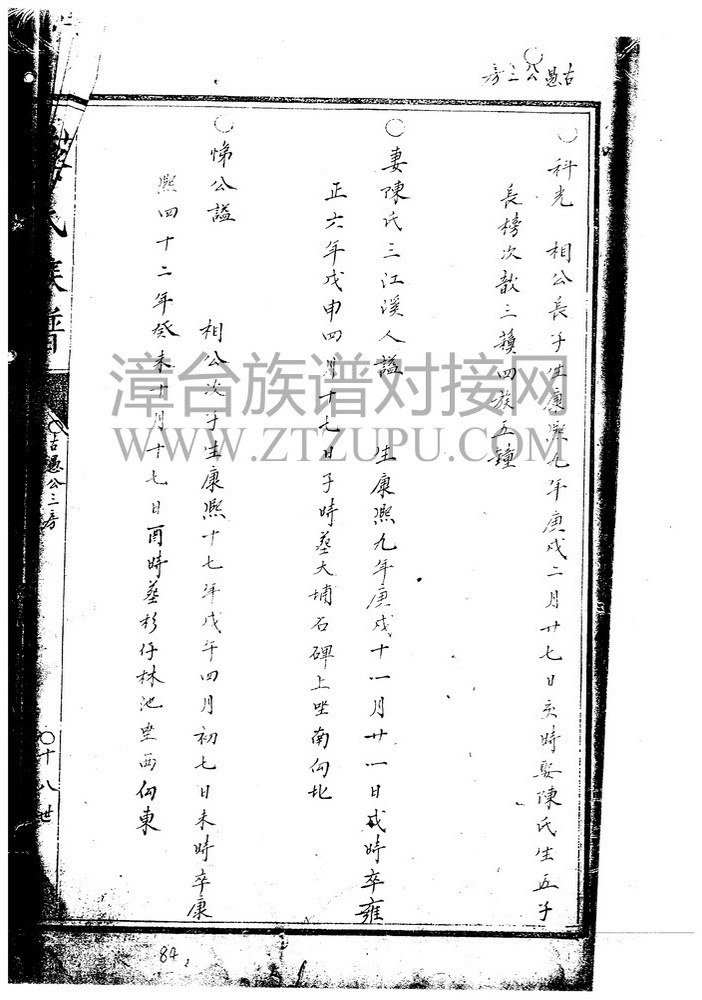 古愚公三房
○科光 相公長子生康熙九年庚戌二月廿七日亥時娶陳氏生五子
長榜次歆三 四族五鐘
○妻陳氏三江溪人謚 生康熙九年庚戌十一月廿一日戌時卒雍
正六年戊申四月十七日子時葬大埔石碑上坐南向北
○悌公謚 相公次子生康熙十七年戊午四月初七日未時卒康
熙四十二年癸未十月十七日酉時葬杉仔林池坐西向東
氏族譜
古愚公三房
十八世
84
漳台族谱对接网
WWW.ZTZUPU.COM